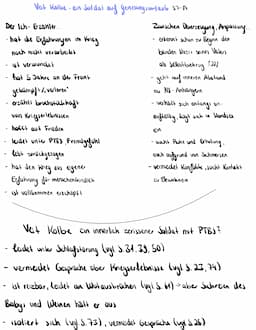 Veit Kolbe - ein Soldat auf Genesungsurlaub
Der Ich-Erzähler
- hat die Erfahrungen im Krieg
noch nicht verarbeitet
- ist verwundet
- hat 5 Jahre an der Front
gekämpft
- erzählt bruchstückhaft
von Kriegserlebnissen
- hofft auf Frieden
- leidet unter PTBS, Fremdgefühl
- lebt zurückgezogen
- hat den Krieg als eigene
Erfahrung für menschenfeindlich
- ist vollkommen erschöpft
Zwischen Überzeugung, Anpassung
- erkennt schon zu Beginn den
blinden seines Vaters
als Selbstbetrug
- geht auf inneren Abstand
zu NS-Anhängern
- verhält sich anfangs un-
auffällig, fügt sich in
ein
- sucht Ruhe und Erholung,
auch aufgrund von Schmerzen
- vermeidet Konflikte, sucht Kontakt
zu
Veit Kolbe ein innerlich zerrissener Soldat mit PTBS?
- leidet unter Schlafstörung (vgl S. 31, 39, 50)
- vermeidet Gespräche über Kriegserlebnisse (vgl S. 23, 74)
- ist reizbar, leidet an Wutausbrüchen (vgl S. 61) → aber Schreien des
Babys und Weinen hält er aus
- isoliert sich (vgl S. 73), vermeidet Gespräche (vgl S. 28)